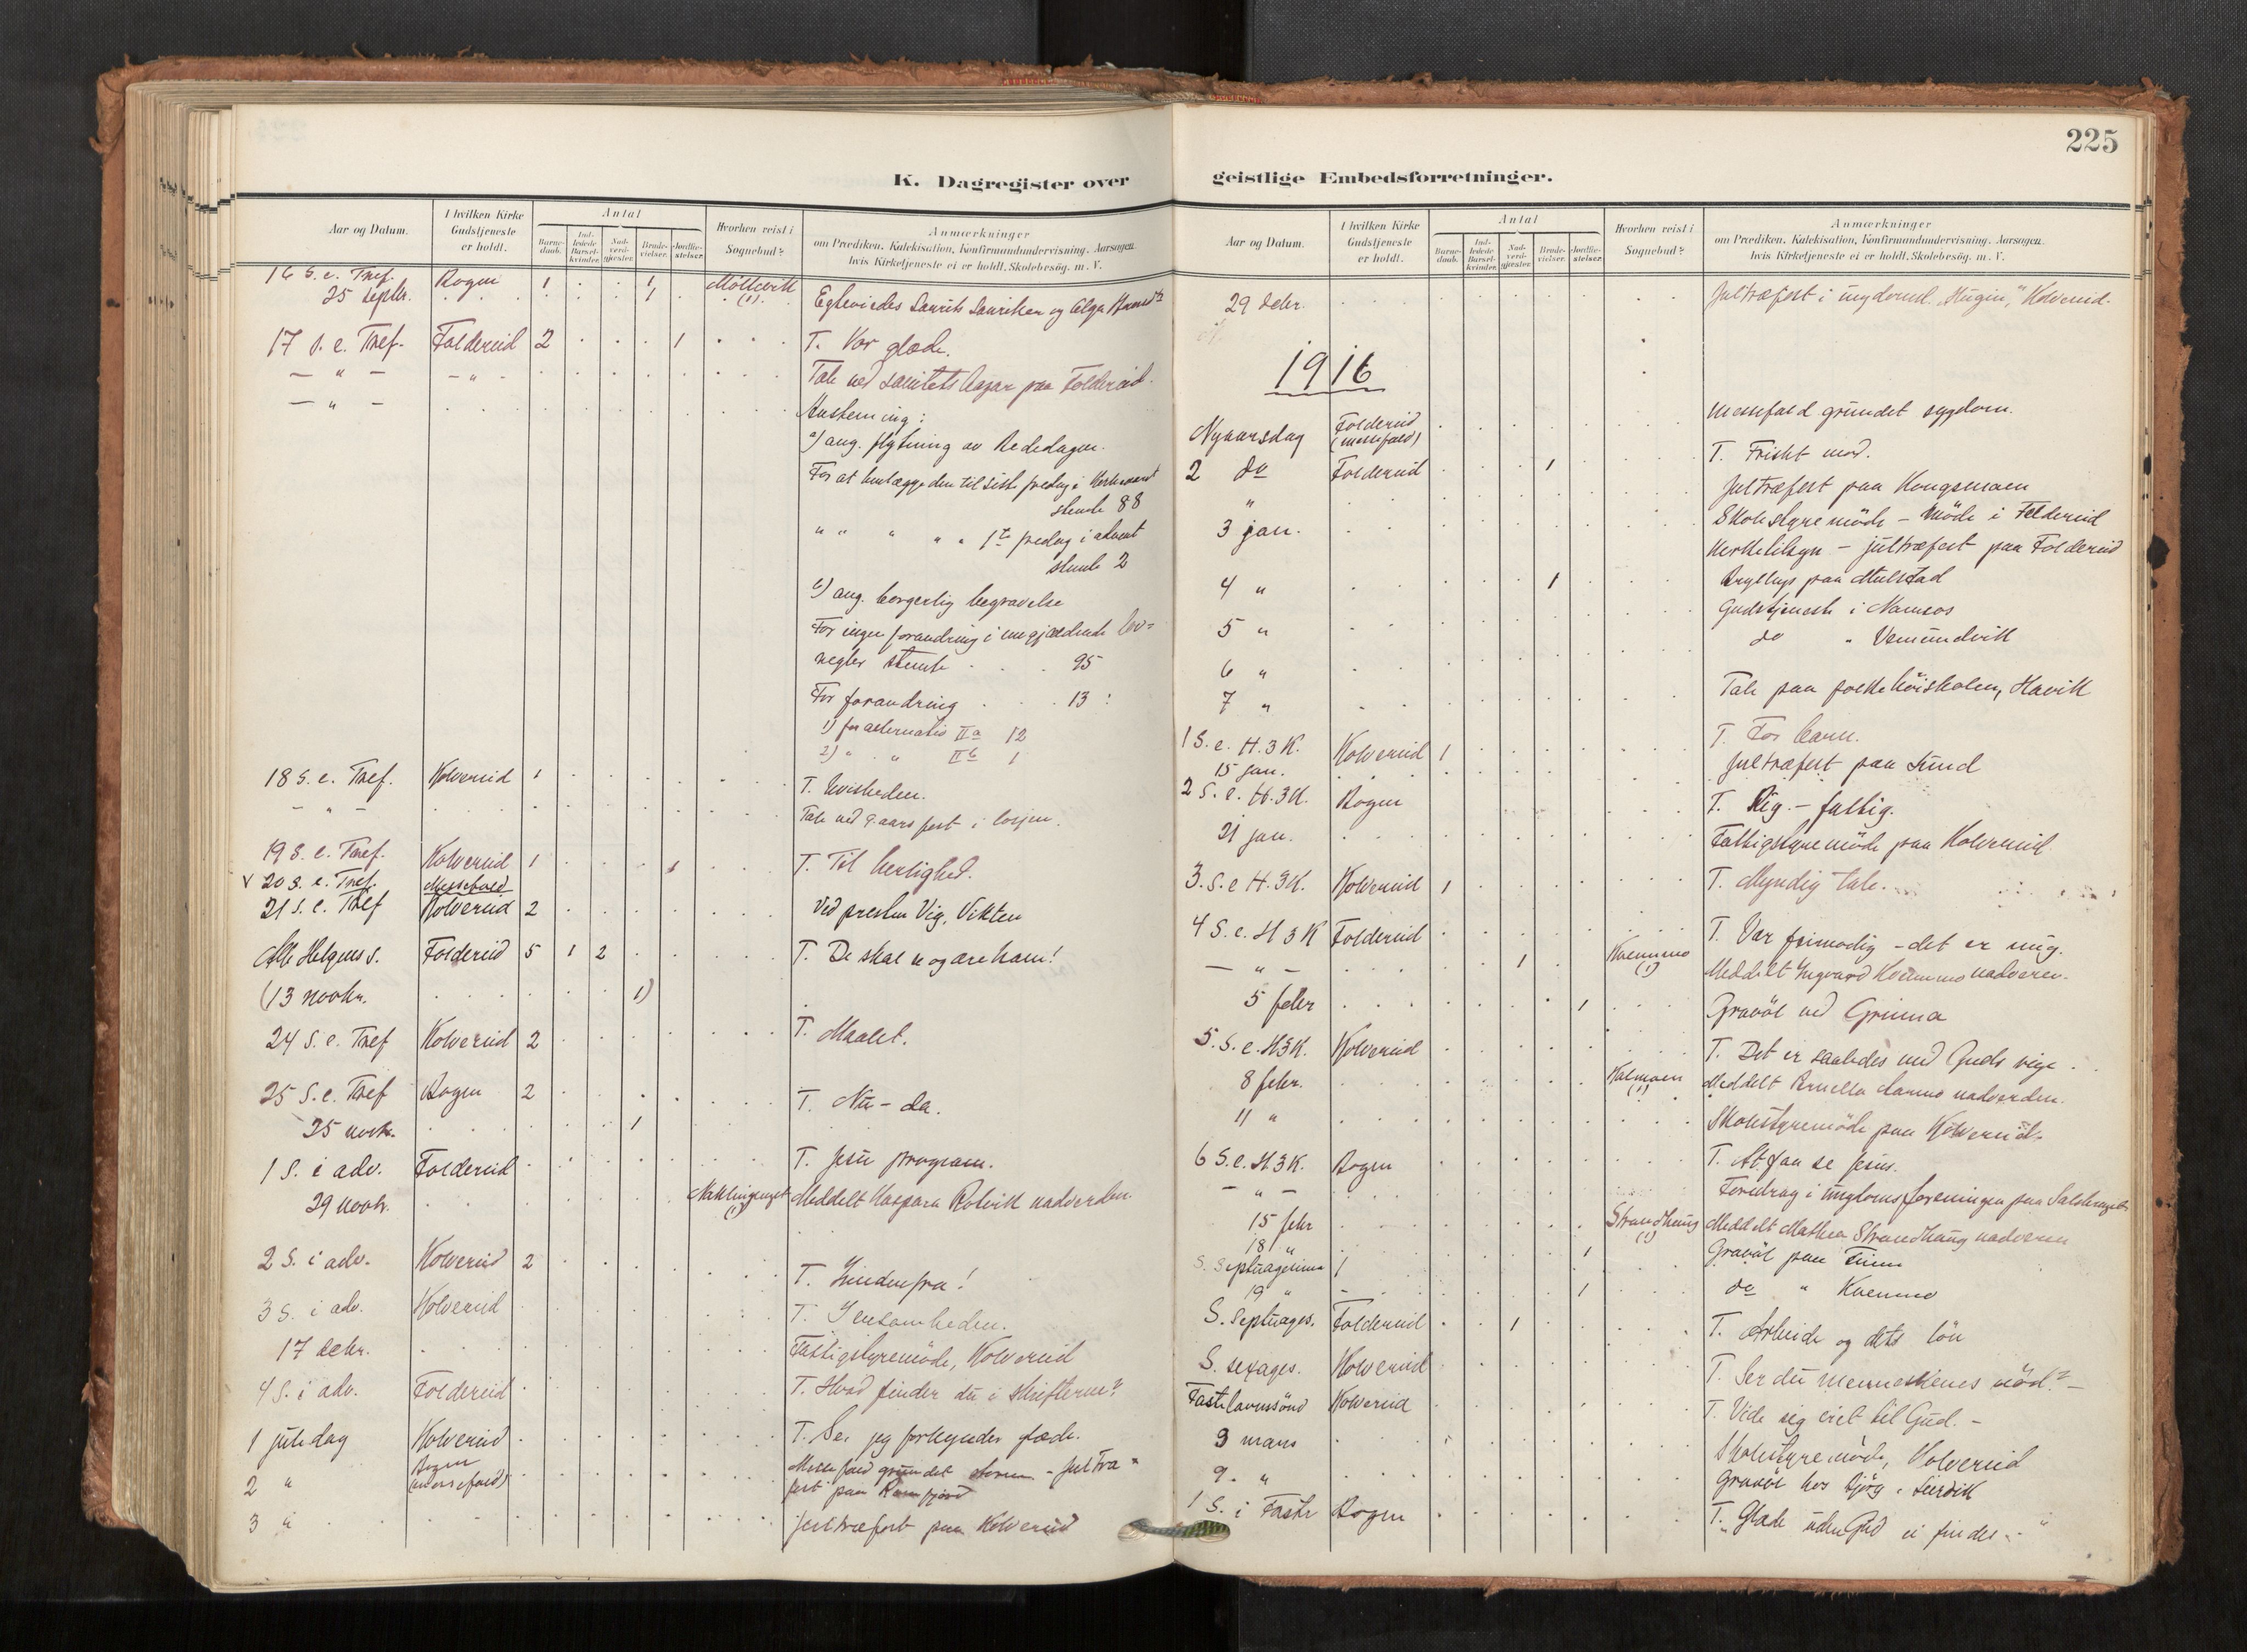 225
K. Dagregister over geistlige Embedsforretninger.
Aar og Datum.
I hvilken Kirke Gudstjeneste er holdt.
Antal
Barnedaab.
Indledede Barselkvinder.
Nadverdgjester.
Brudevielser.
Jordfæstelser.
Hvorhen reist i Sognebud?
Anmærkninger
om Prædiken, Katekisation, Konfirmandundervisning. Aarsagen, hvis Kirketjeneste ei er holdt. Skolebesög. m. V.
16 S. e. Tref. Bogen 1 . . 1
25 septbr. 1 (1) Egteviedes Laurits Lauritsen og
17 s. e. Tref. Foldereid 2 . . . 1 T. Vor glæde.
— " — — " — Tale ved sanitetsbazar paa Foldereid.
— " — Avstemning:
a) ang. flytning av Bededagen.
For at henlægge den til siste fredag i kirkeaaret
stemte 88
" " " " " 1ste fredag i advent
stemte 2
b) ang. borgerlig begravelse
For ingen forandring i nugjældende lov-
regler stemte . . . 95
For forandring . . . 13 :
1) for alternativ IIa 12
2) " " IIb 1
18 s. e. Tref. Kolvereid 1 T. Uvisheden.
— " — Tale ved 9-aars fest i losjen.
19 S. e. Tref. Kolvereid 1 . . . 1 T. Til herlighed.
v 20 s. e. Tref. Messefald
21 s. e. Tref Kolvereid 2 Ved presten Vig, Vikten
Alle Helgens s. Foldereid 5 1 2 T. De skal se og ære ham!
(13 novbr. 1)
24 s. e. Tref Kolvereid 2 T. Maalet.
25 S. e. Tref Bogen 2 T. Nu - da.
25 novbr. 1
1 s. i adv. Foldereid T. Jesu program.
29 novbr. (1) Meddelt Kaspara Rotvik nadverden
2 S. i adv. Kolvereid 2 T. Indenfra!
3 s. i adv. Kolvereid T. I ensomheden.
17 debr. Fattigstyremöde, Kolvereid
4 s. i adv. Foldereid T. Hvad finder du i skrifterne?
1 juledag Kolvereid T. Se, jeg forkynder glæde.
2 " Bogen (messefald) Messefald grundet storm. - Juletræ-
fest paa
3 " Juletræfest paa Kolvereid
Aar og Datum.
I hvilken Kirke Gudstjeneste er holdt.
Antal
Barnedaab.
Indledede Barselkvinder.
Nadverdgjester.
Brudevielser.
Jordfæstelser.
Hvorhen reist i Sognebud?
Anmærkninger
om Prædiken, Katekisation, Konfirmandundervisning. Aarsagen, hvis Kirketjeneste ei er holdt. Skolebesög. m. V.
29 debr. Juletræfest i ungdomsl. "Hugin," Kolvereid.
1916
Nyaarsdag Foldereid (messefald) Messefald grundet sygdom.
2 do Foldereid 1 T. Friskt mod.
" Juletræfest paa Kongsmoen
3 jan. Skolestyremöde - Möde i Foldereid
kirketilsyn - juletræfest paa Foldereid
4 " 1 Bryllup paa Mulstad
5 " Gudstjeneste i Namsos
6 " do " Vemundvik
7 " Tale paa folkehöiskolen, Havik
1 S. e. H. 3 K. Kolvereid 1 T. For barn.
15 jan. Juletræfest paa Sund
2 S. e. H. 3 K. Bogen T. Rig. - fattig.
21 jan. Fattigstyremöde paa Kolvereid
3. S. e H. 3 K. Kolvereid 1 T. Myndig tale.
4 S. e. H 3 K Foldereid T. Vær frimodig - det er mig.
— " — 1 Kvemmo (1) Meddelt Ingvard Kvemmo nadveren.
5 febr 1 Gravöl ved Grinna
5. S. e. H3K. Kolvereid T. Det er saaledes med Guds rige
8 febr. Kalmoen (1) Meddelt nadverden.
11 " Skolestyremöde paa Kolvereid
6 S. e. H. 3 K. Bogen T. At faa se Jesus.
— " — Foredrag i ungdomsforeningen paa
15 febr Strandhaug (1) Meddelt Mathea Strandhaug nadveren
18 " 1 Gravöl paa
S. Septuagesima
19 " 1 do " Kvemmo
S. Septuages. Foldereid 1 T. Arbeide og dets lön
S. sexages. Kolvereid T. Ser du menneskenes nöd? -
Fastelavnssönd Kolvereid T. Vide sig viet til Gud. -
3 mars Skolestyremöde, Kolvereid
9. " Gravöl hos
1 S. i Faste Bogen T. "Glæde uden Gud ei findes."